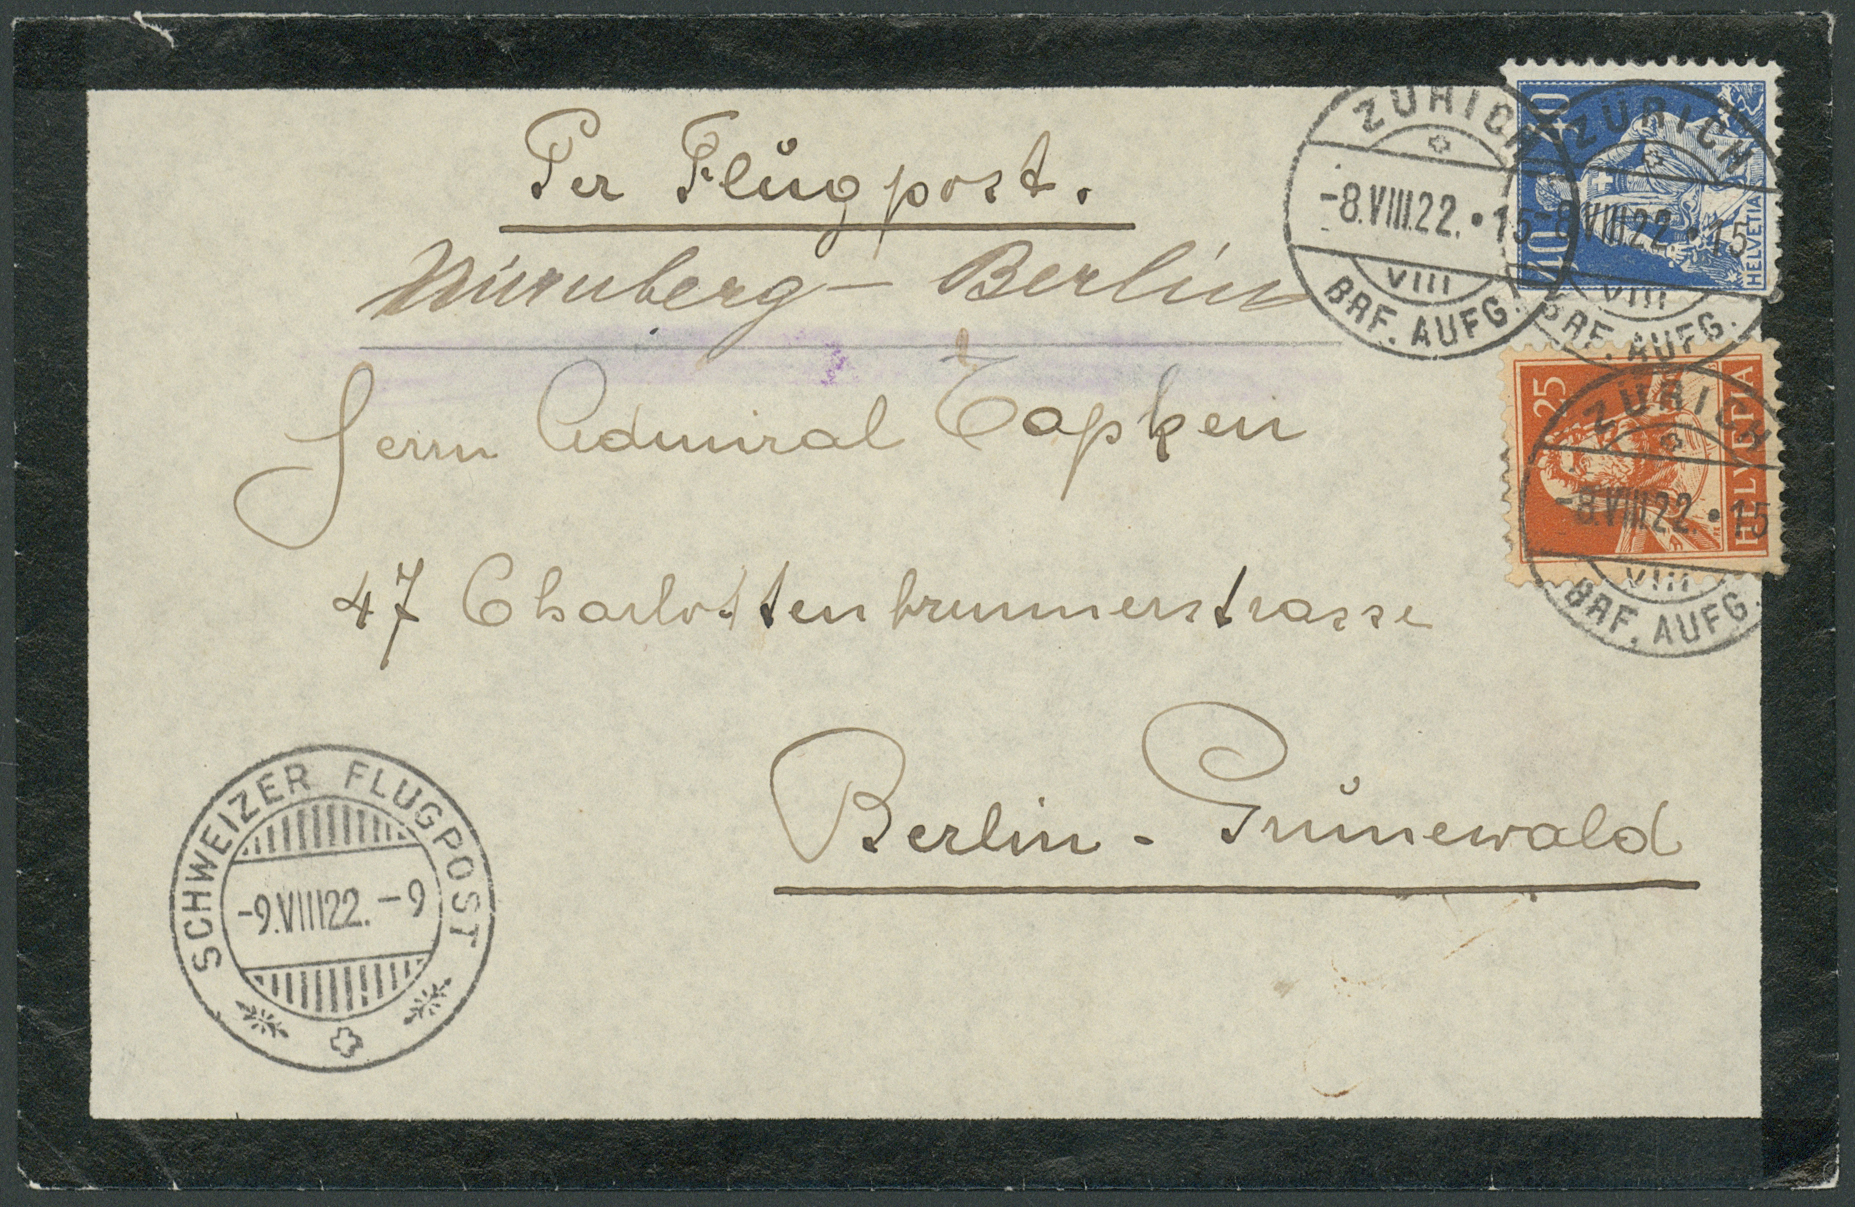 Per Flugpost.
Nürnberg – Berlin
Herrn Admiral Tapken
47 Charlottenbrunnerstrasse
Berlin - Grunewald
ZÜRICH
-8.VIII.22.•15
VIII
BRF. AUFG.
ZÜRICH
-8.VIII.22.•15
VIII
BRF. AUFG.
40
40
HELVETIA
ZÜRICH
-8.VIII.22.•15
VIII
BRF. AUFG.
25
HELVETIA
SCHWEIZER FLUGPOST
-9.VIII22.-9